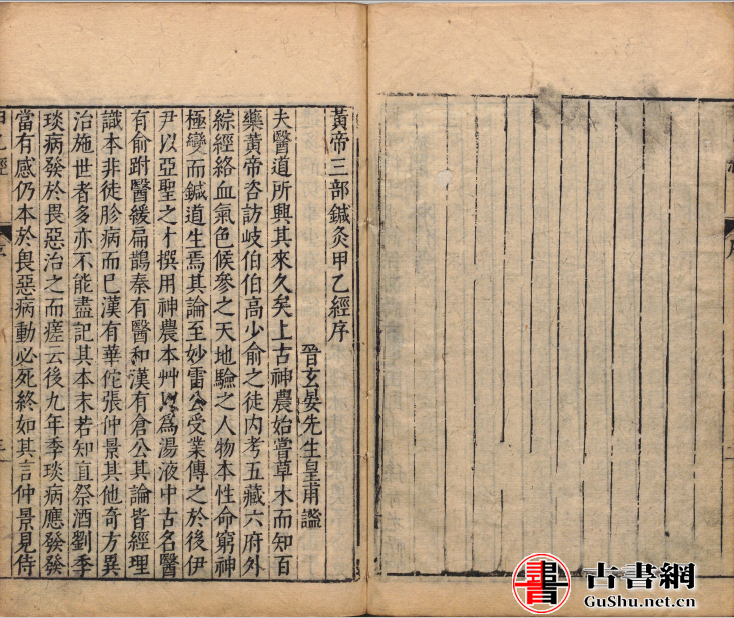 黃帝三部鍼灸甲乙經序
晉玄晏先生皇甫謐
夫醫道所興其來久矣上古神農始嘗草木而知百
藥黃帝咨訪岐伯伯高少俞之徒內考五藏六府外
綜經絡血氣色候參之天地驗之人物本性命窮神
極變而鍼道生焉其論至妙雷公受業傳之於後伊
尹以亞聖之才撰用神農本艸以為湯液中古名醫
有俞跗醫緩扁鵲秦有醫和漢有倉公其論皆經理
識本非徒胗病而已漢有華佗張仲景其他奇方異
治施世者多亦不能盡記其本末若知直祭酒劉季
琰病發於畏惡治之而瘥云後九年季琰病應發發
當有感仍本於畏惡病動必死終如其言仲景見侍
甲乙經
序
書
古書網
GuShu.net.cn